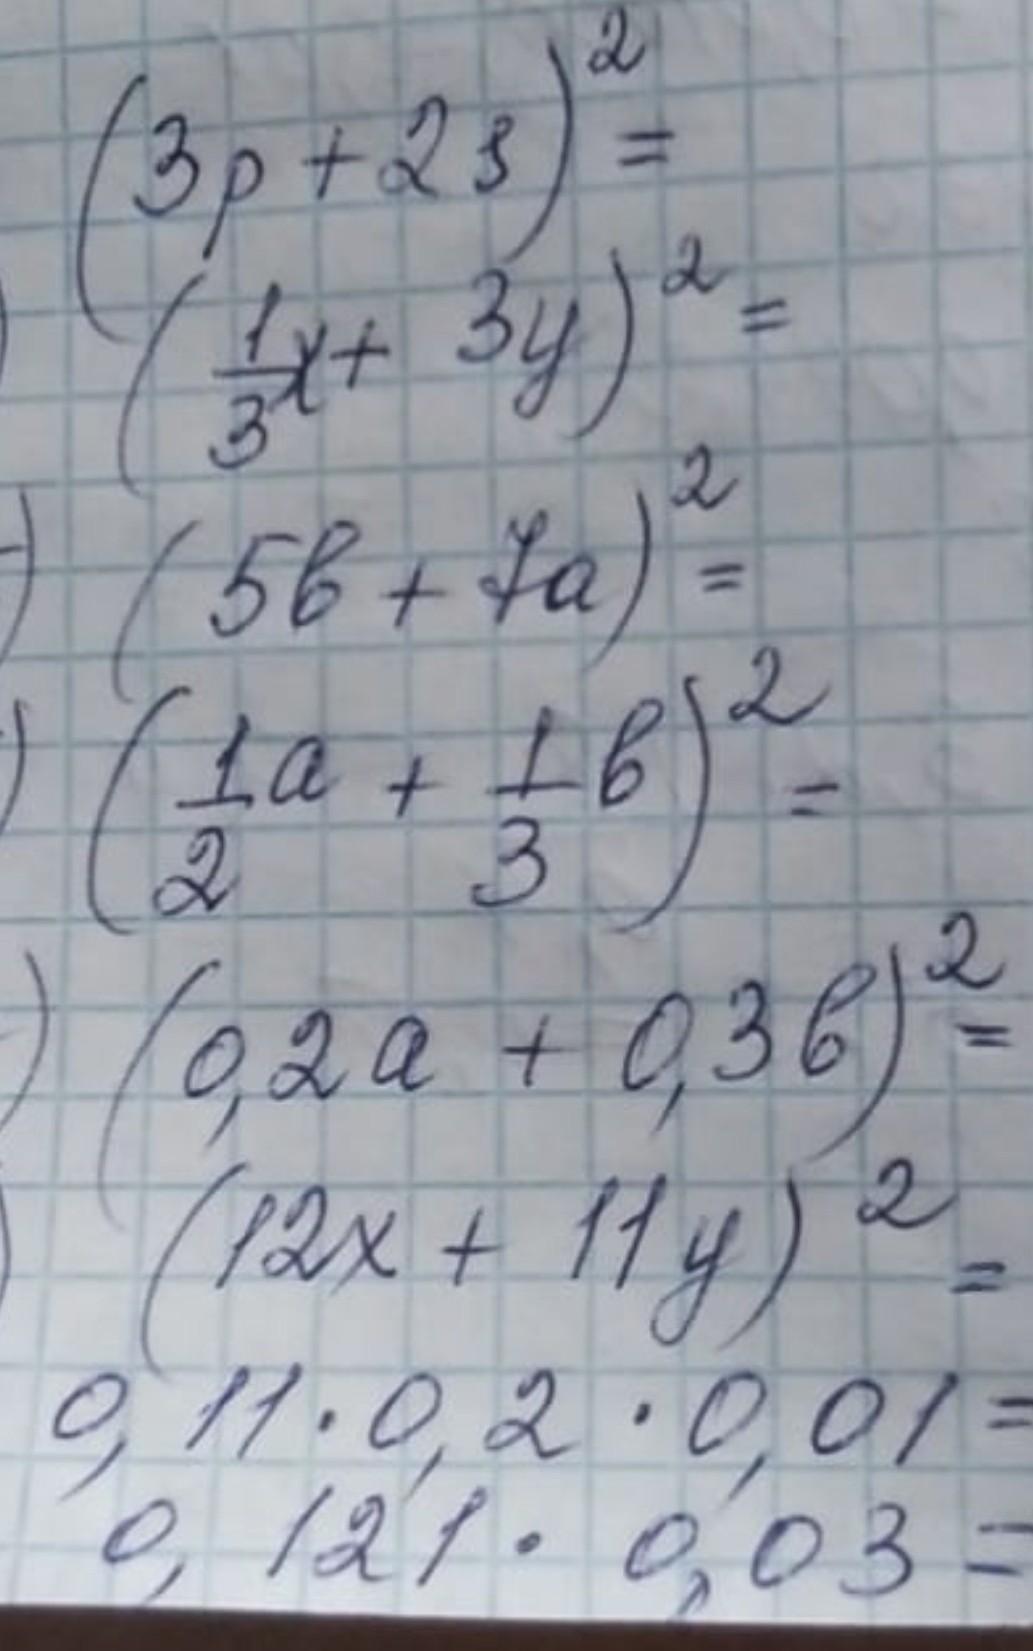 (3p + 2s)² =
(1/3 x + 3y)² =
(5в + 7а)² =
(1/2 a + 1/3 в)² =
(0,2а + 0,3в)² =
(12x + 11y)² =
0,11 · 0,2 · 0,01 =
0,121 · 0,03 =